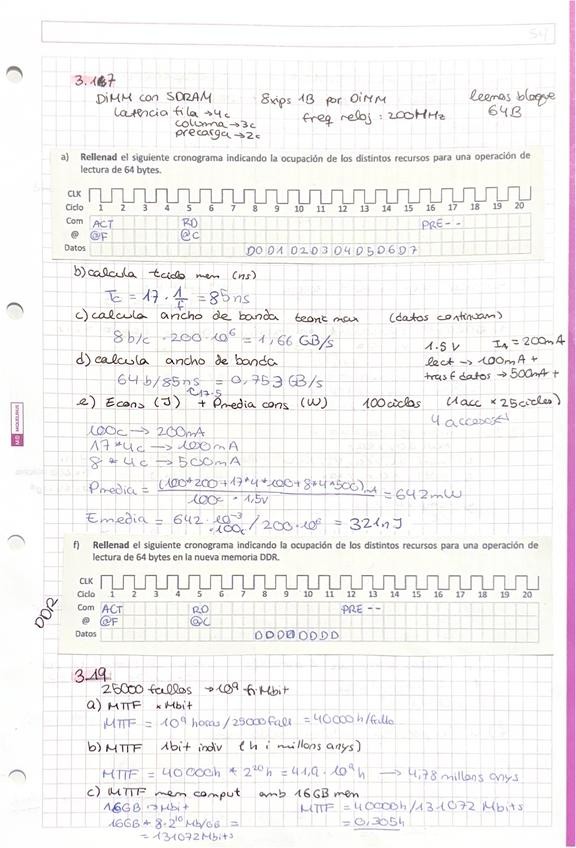 54
3.17
DIMM con SDRAM 8xips 1B por DIMM leemos bloque
latencia fila → 4c freq reloj : 200MHz 64B
columna → 3c
precarga → 2c
a) Rellenad el siguiente cronograma indicando la ocupación de los distintos recursos para una operación de
lectura de 64 bytes.
CLK
Ciclo 1 2 3 4 5 6 7 8 9 10 11 12 13 14 15 16 17 18 19 20
Com ACT RD PRE--
@ @F @C
Datos D0 D1 D2 D3 D4 D5 D6 D7
b) calcula tciclo mem (ns)
Tc = 17 · 1/f = 85ns
c) calcula ancho de banda teoric max (datos continuam)
8b/c · 200 · 10⁶ = 1,66 GB/s
1.5V In = 200mA
d) calcula ancho de banda
lect → 100mA +
64b/85ns = 0,753 GB/s
trasf datos → 500mA +
17·5
e) Econs (J) + Pmedia cons (W) 100ciclos (1acc × 25ciclos)
4 accesos
100c → 200mA
17*4c → 100mA
8*4c → 500mA
Pmedia = (100*200+17*4*100+8*4*500)mA / 100c · 1,5V = 642mW
Emedia = 642 · 10⁻³ · 100c / 200·10⁶ = 321nJ
f) Rellenad el siguiente cronograma indicando la ocupación de los distintos recursos para una operación de
lectura de 64 bytes en la nueva memoria DDR.
DDR
CLK
Ciclo 1 2 3 4 5 6 7 8 9 10 11 12 13 14 15 16 17 18 19 20
Com ACT RD PRE--
@ @F @C
Datos DDDDDDDD
3.19
25000 fallos → 10⁹ h·Mbit
a) MTTF × Mbit
MTTF = 10⁹ horas/25000 fall = 40000h/fallo
b) MTTF 1bit indiv (h i millons anys)
MTTF = 40000h * 2²⁰ h = 41,9 · 10⁹ h → 4,78 millons anys
c) MTTF mem comput amb 16GB mem
16GB → Mbit MTTF = 40000h/131072 Mbits
16GB * 8·2¹⁰ Mb/GB = = 0,305h
= 131072Mbits
MIQUELRIUS